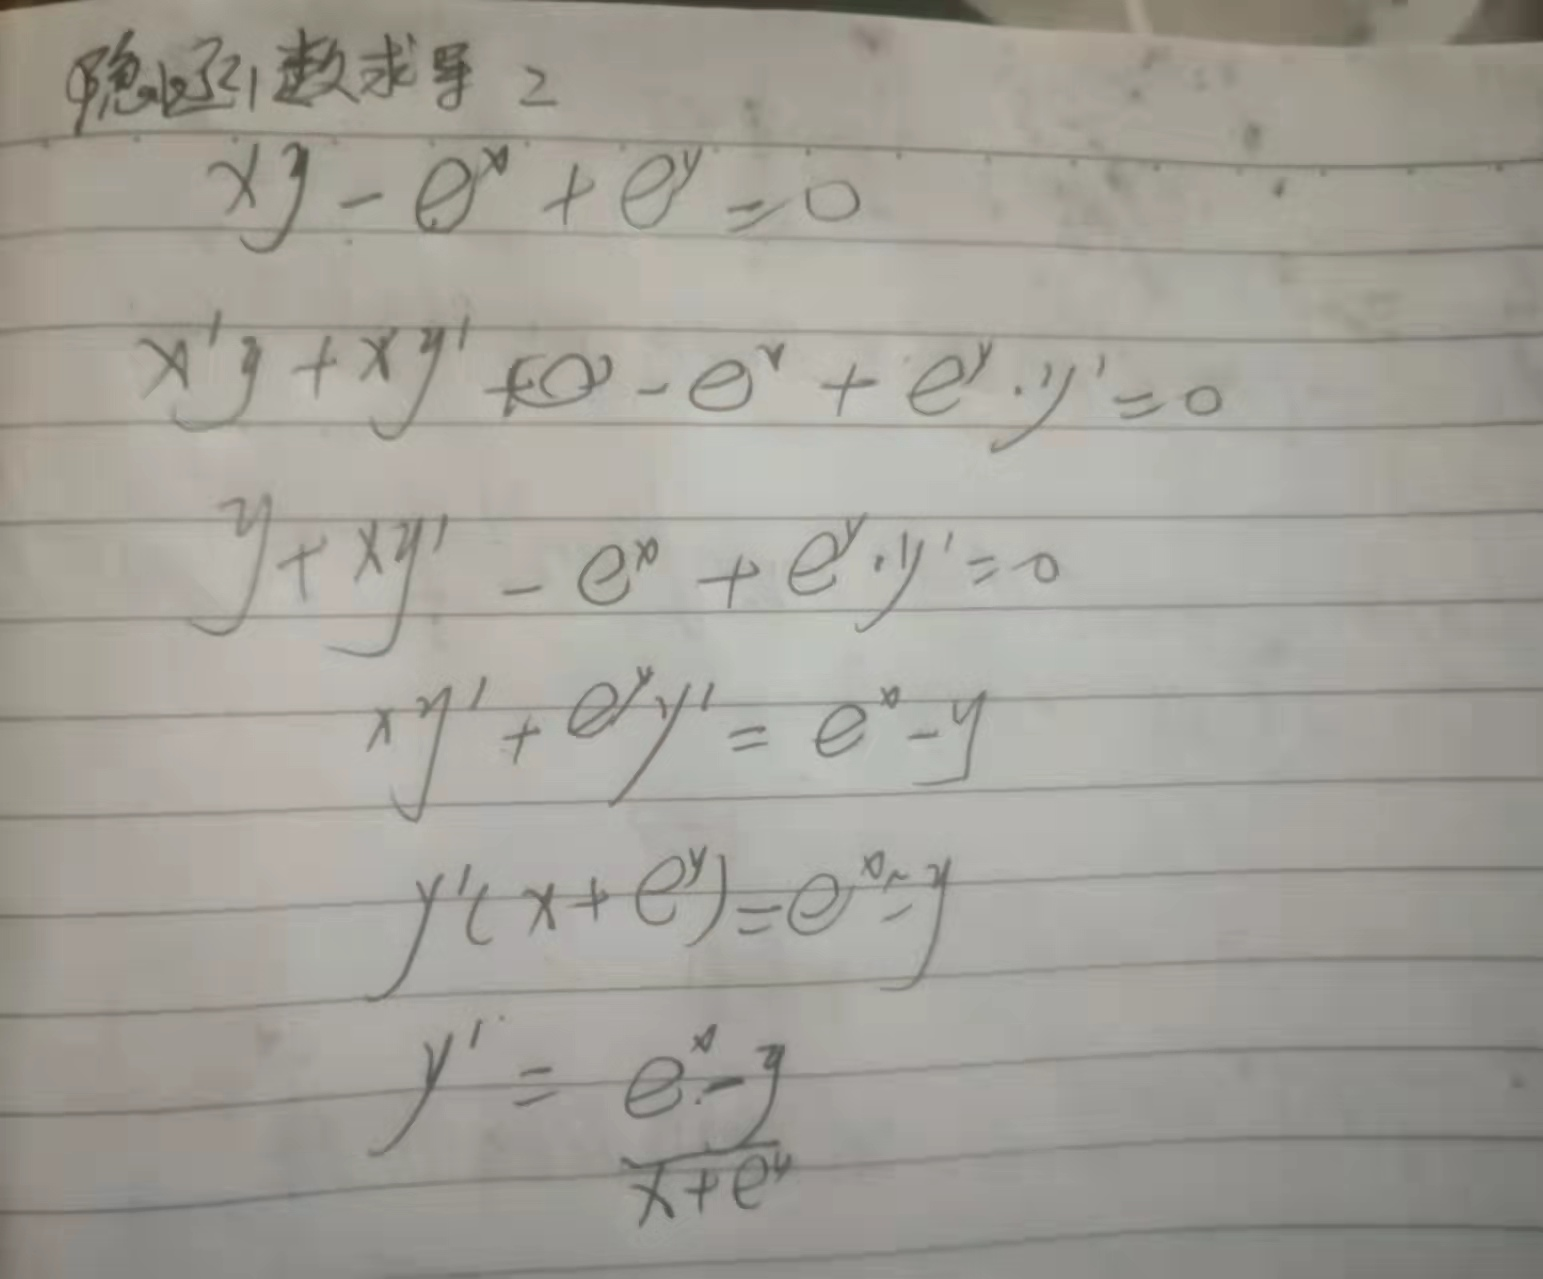 隐函数求导 2
xy - e^x + e^y = 0
x'y + xy' - e^x + e^y · y' = 0
y + xy' - e^x + e^y · y' = 0
xy' + e^y y' = e^x - y
y'(x + e^y) = e^x - y
y' = \frac{e^x - y}{x + e^y}